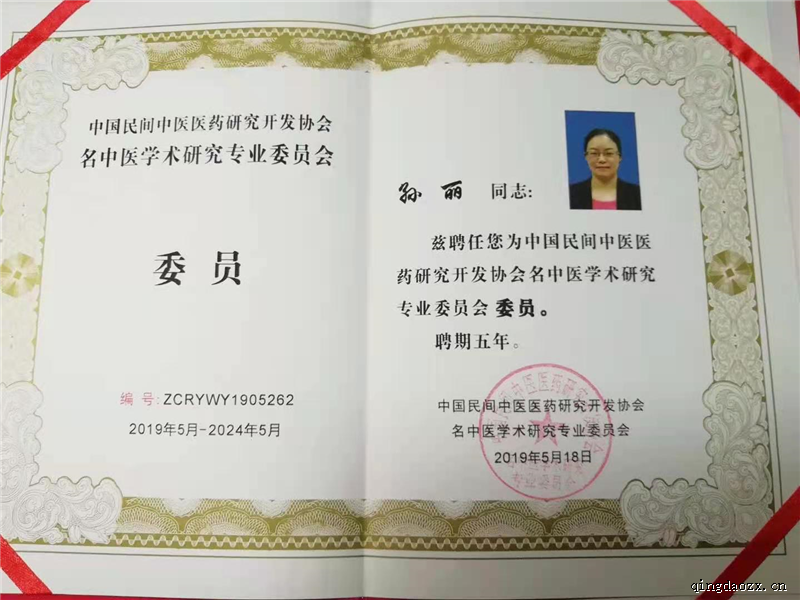 中国民间中医医药研究开发协会
名中医学术研究专业委员会
委员
编号:ZCRYWY1905262
2019年5月-2024年5月
孙丽 同志:
兹聘任您为中国民间中医医
药研究开发协会名中医学术研究
专业委员会 委员。
聘期五年。
中国民间中医医药研究开发协会
名中医学术研究专业委员会
2019年5月18日
qingdaozx.cn